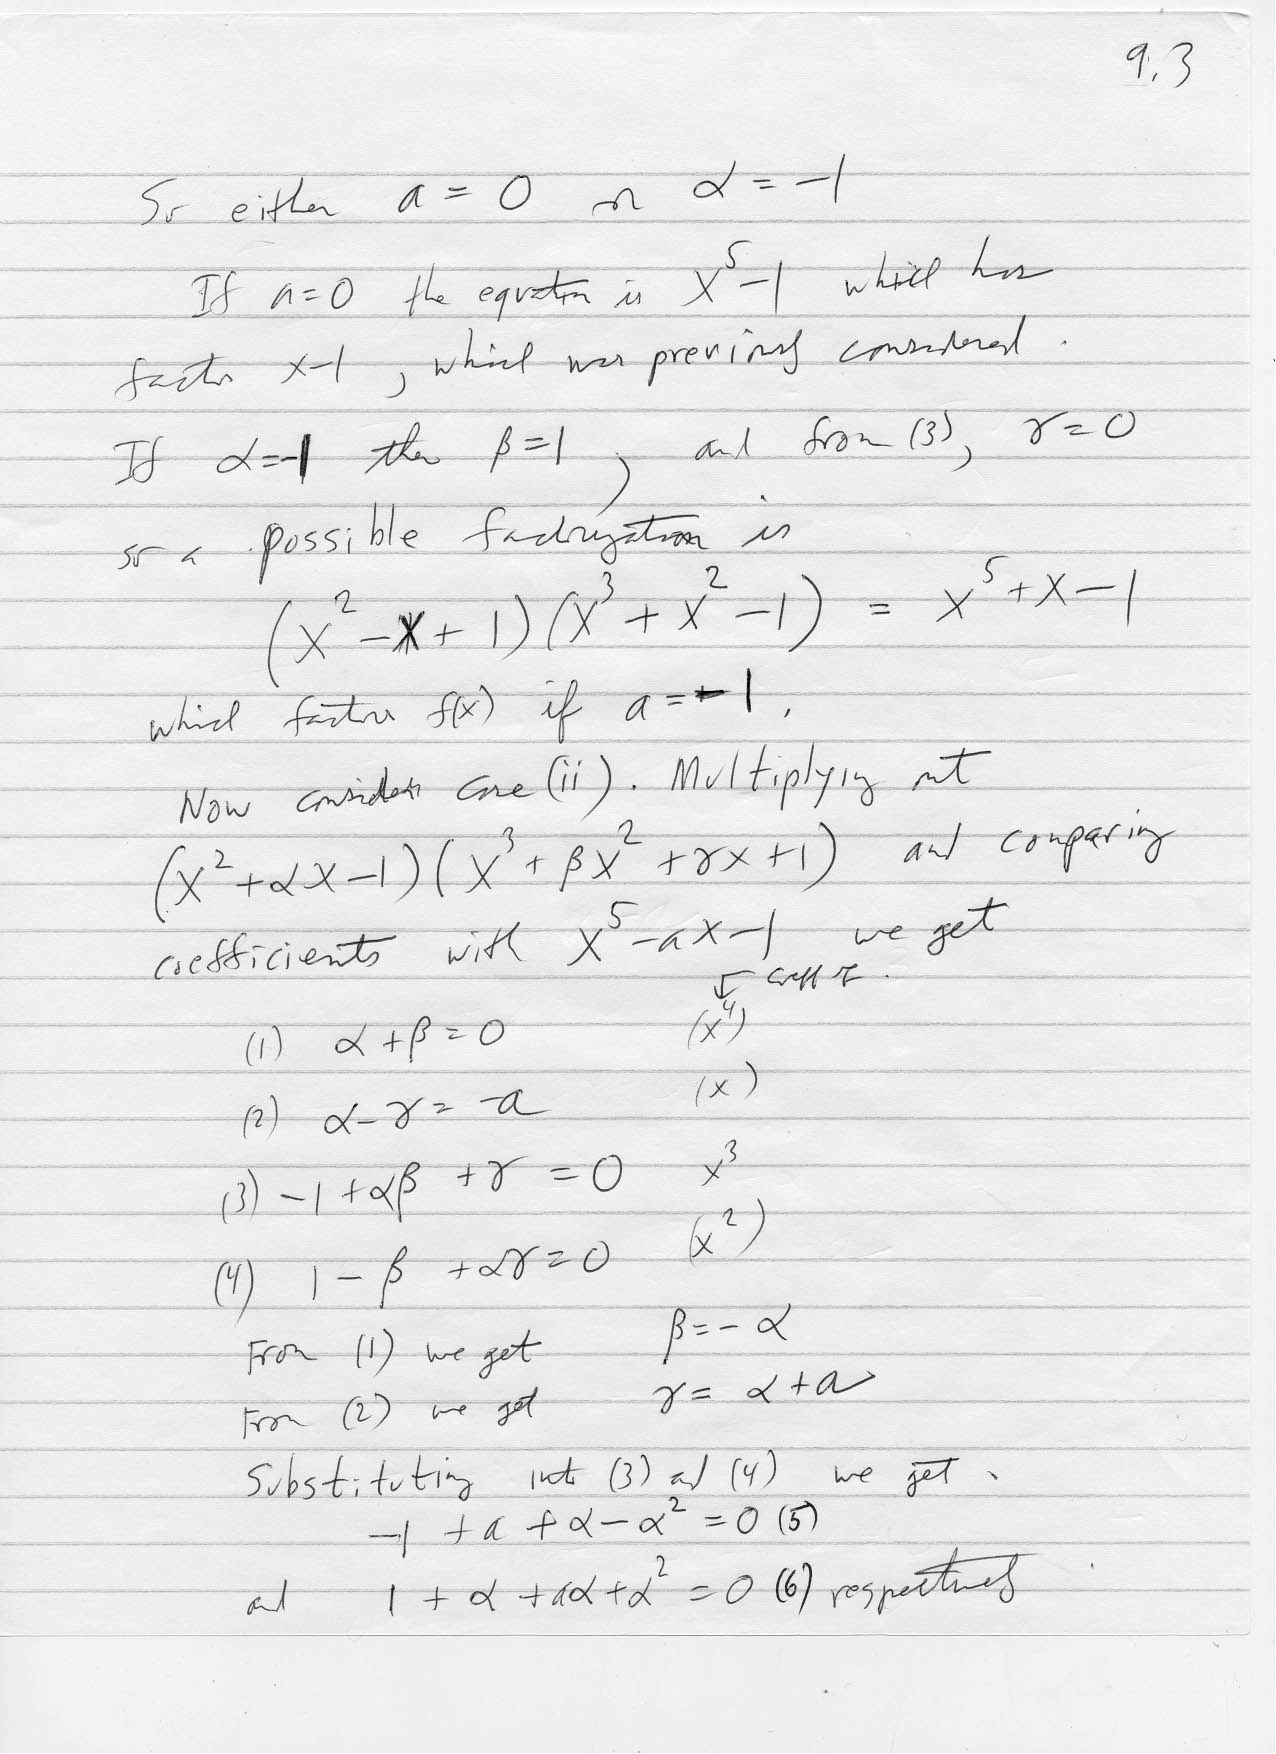 9.3
So either a = 0 or α = -1
If a=0 the equation is x⁵-1 which has
factor x-1, which was previously considered.
If α=-1 then β=1, and from (3), γ=0
so a possible factorization is
(x²-x+1)(x³+x²-1) = x⁵+x-1
which factors f(x) if a=-1.
Now consider case (ii). Multiplying out
(x²+αx-1)(x³+βx²+γx+1) and comparing
coefficients with x⁵-ax-1 we get
↓ coeff of.
(1) α+β=0 (x⁴)
(2) α-γ=-a (x)
(3) -1+αβ+γ=0 x³
(4) 1-β+αγ=0 (x²)
From (1) we get β=-α
From (2) we get γ=α+a
Substituting into (3) and (4) we get.
-1+a+α-α²=0 (5)
and 1+α+aα+α²=0 (6) respectively